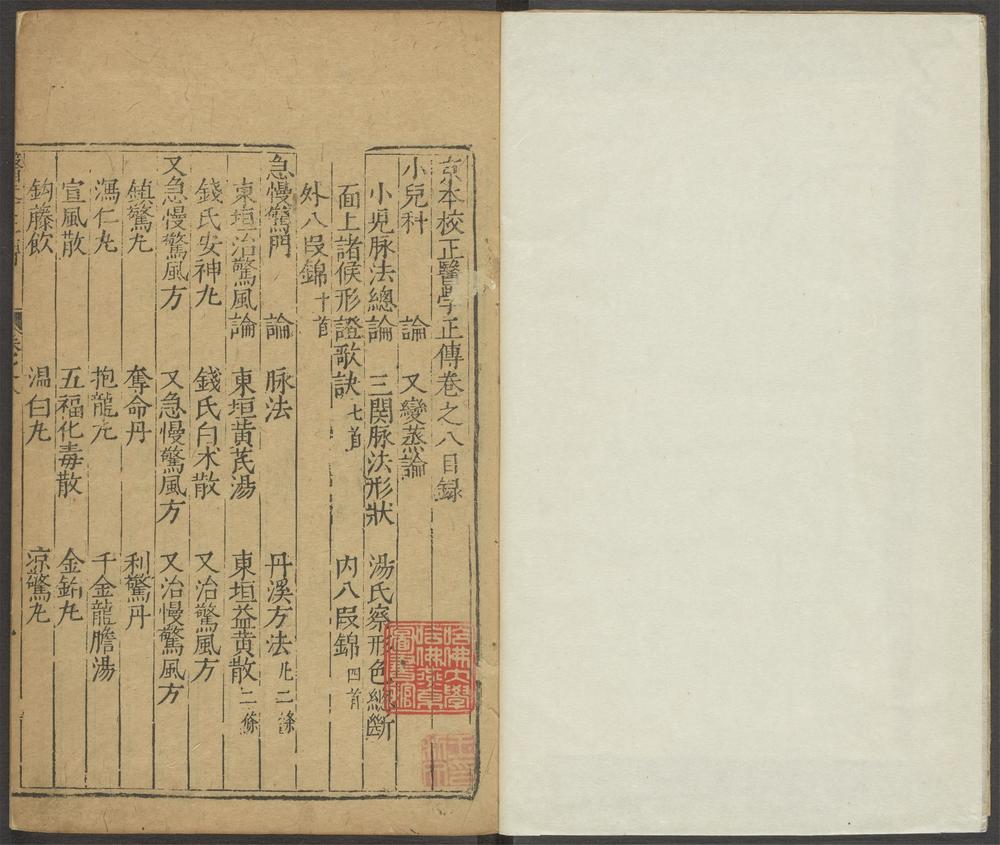 京本校正醫學正傳卷之八目録
小兒科　論　又變蒸論
小児脉法總論　三関脉法形狀　湯氏察形色緫斷
面上諸候形證歌訣七首　内八段錦四首
外八段錦十首
急慢驚門　論　脉法　丹溪方法凡二條
東垣治驚風論　東垣黄芪湯　東垣益黄散二條
錢氏安神丸　錢氏白术散　又治驚風方
又急慢驚風方　又急慢驚風方　又治慢驚風方
鎮驚丸　奪命丹　利驚丹
瀉仁丸　抱龍丸　千金龍膽湯
宣風散　五福化毒散　金鉑丸
鈎藤飲　温白丸　凉驚丸
哈佛大學哈佛燕京圖書館